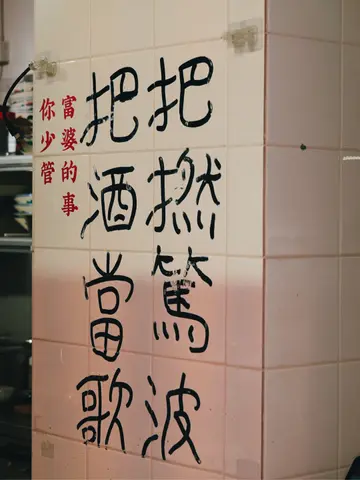 把撚篤波
把酒當歌
富婆的事
你少管